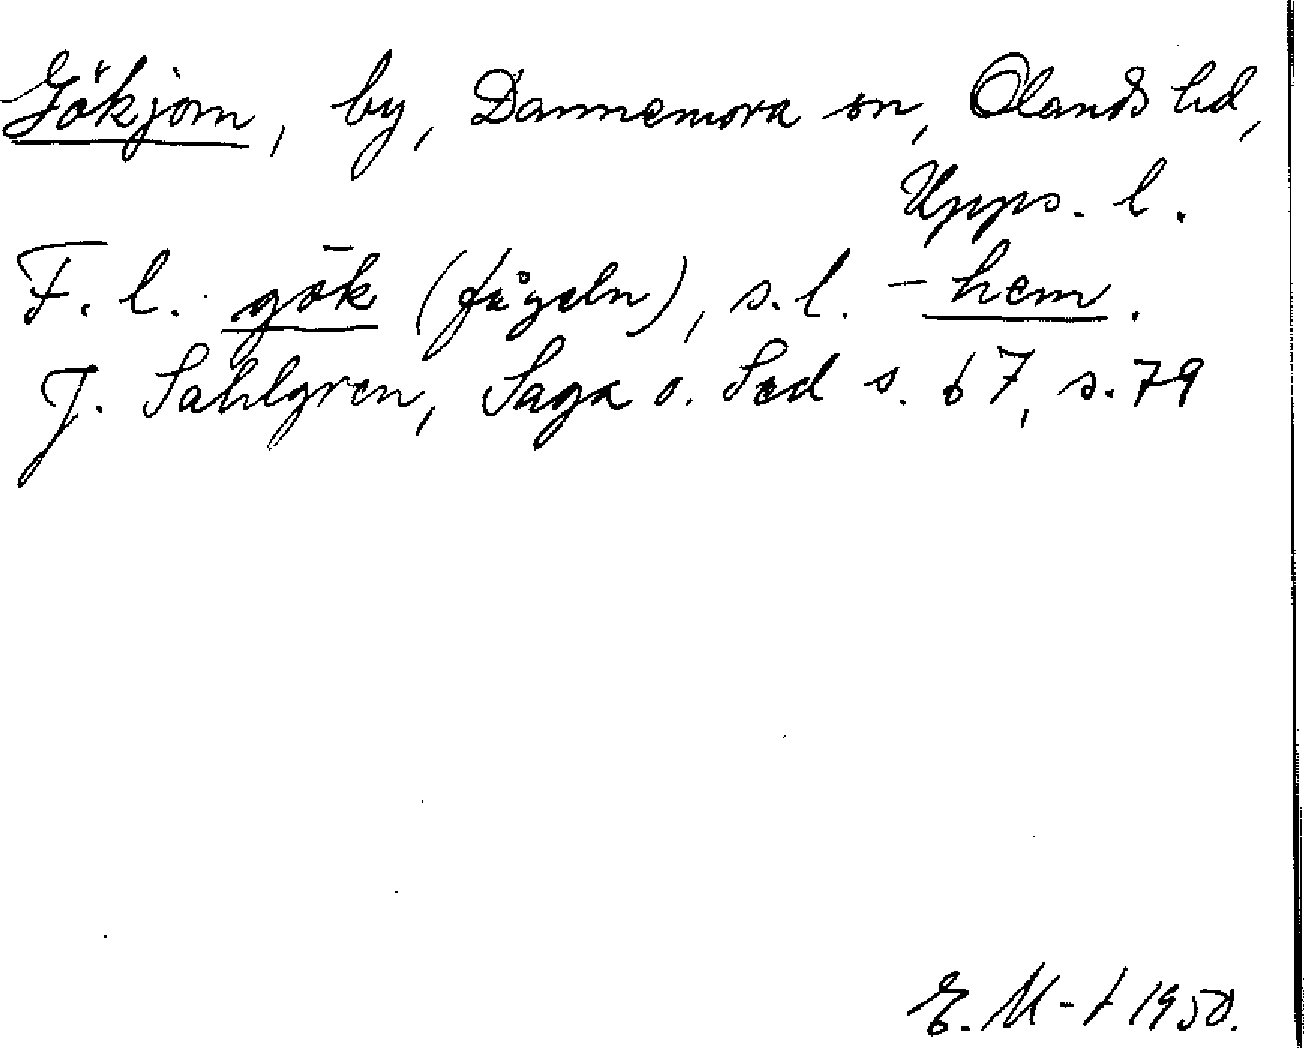 Gökjom, by, Dannemora sn, Olands hd,
Upps. l.
F. l. gök (fågeln), s. l. - hem.
J. Sahlgren, Saga o. Sed s. 67, s. 79
E. M-t 1950.